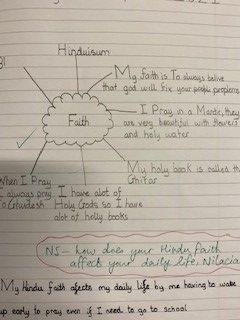 Hinduisum
My faith is To always belive
that god will fix your people proplems
I Pray in a Mandir, they
are very beautiful with flowers
and holy water
Faith
My holy book is called the
Ghitar
When I Pray
I always pray
To Ghudesh
I have alot of
Holy Gods so I have
alot of holly books
NS - how does your Hindu faith
affects your daily life, Nilacia
My Hindu faith afects my daily life by me having to wake
up early to pray even if I need to go to school